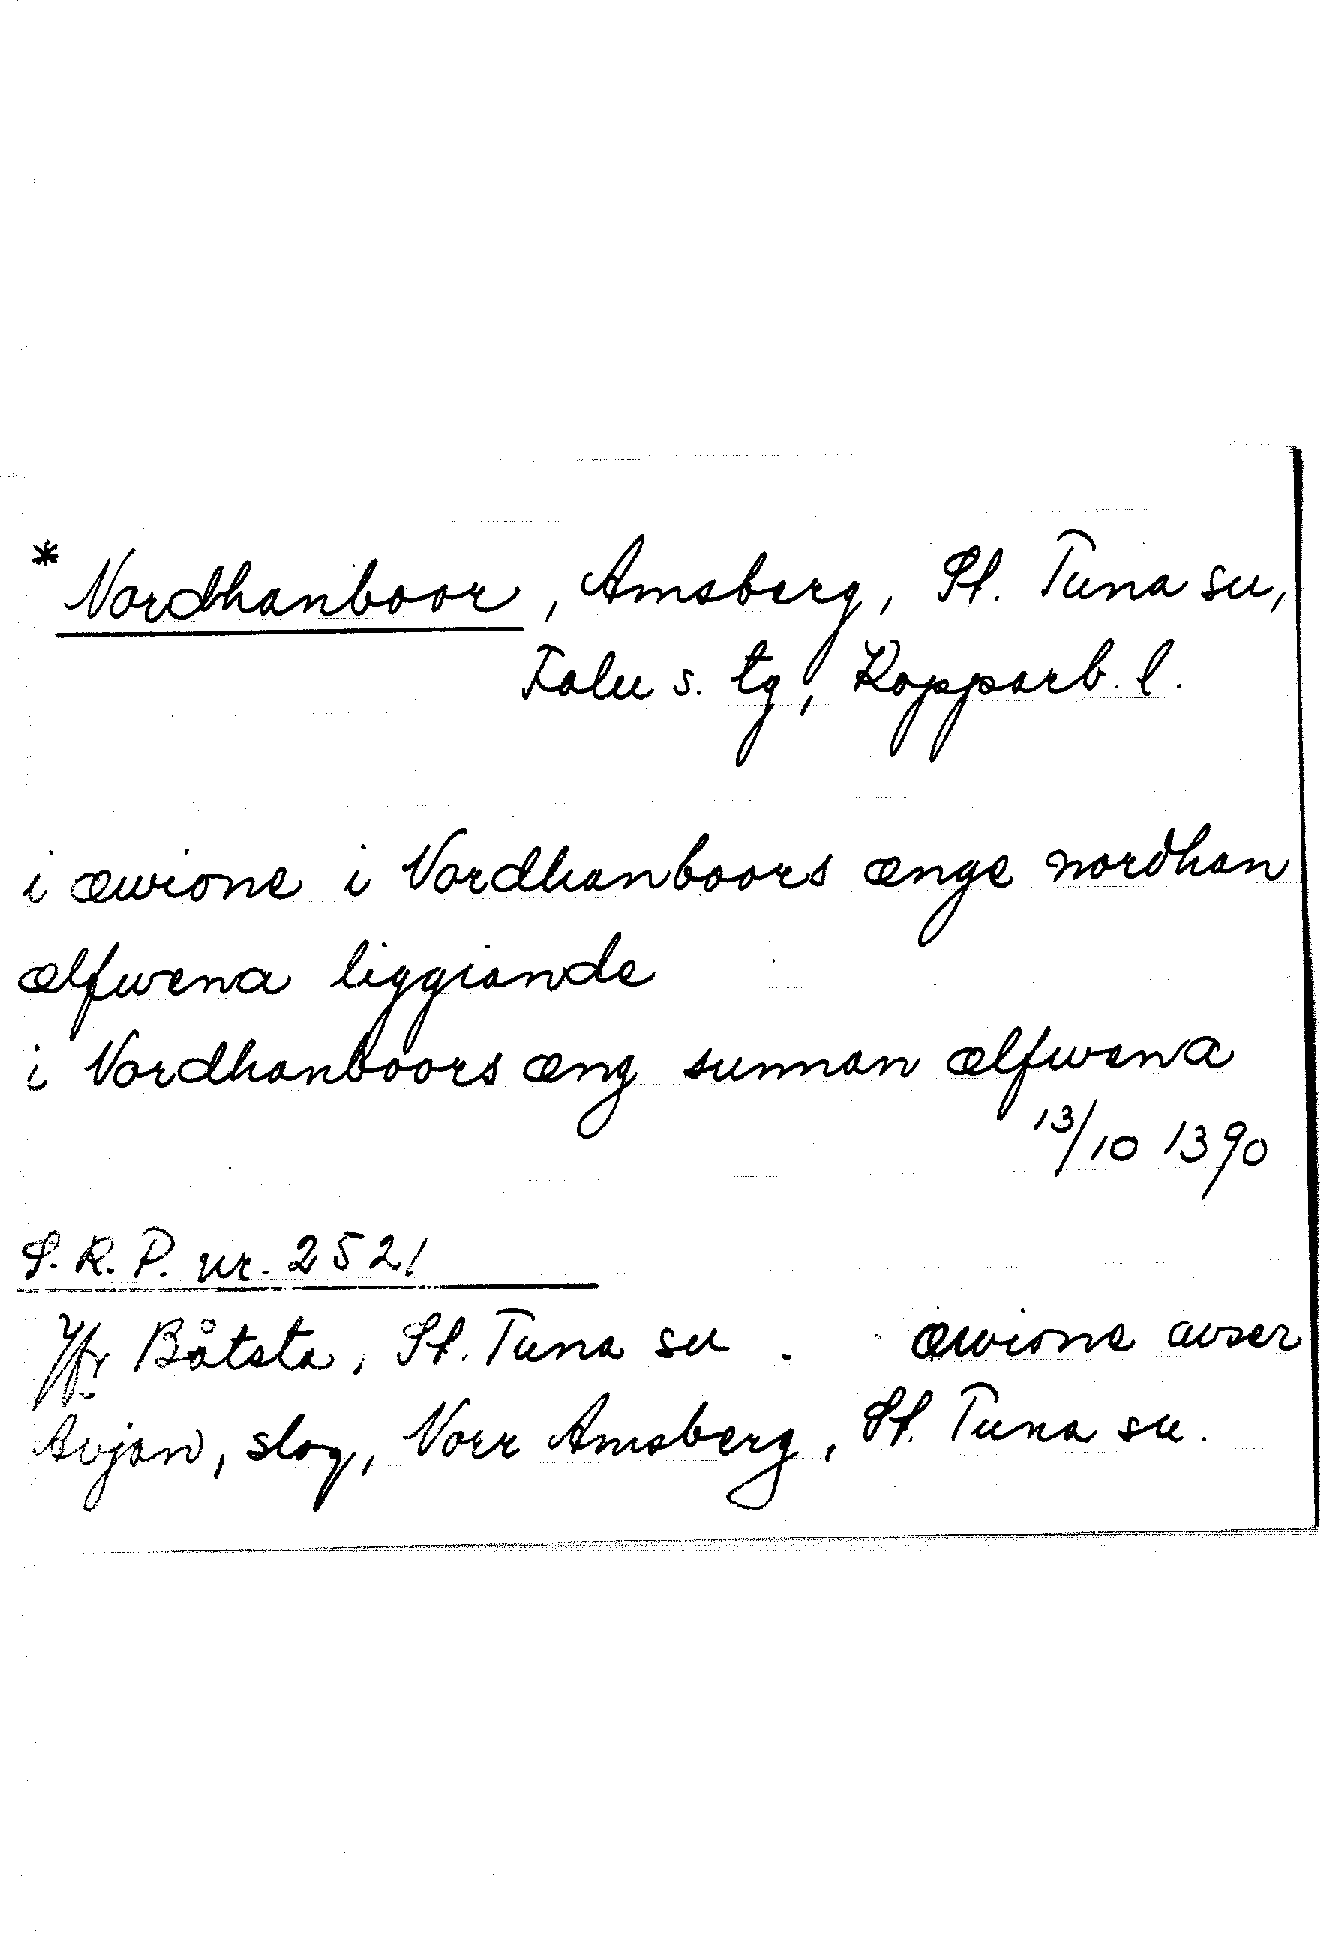 * Nordhanboor, Amsberg, St. Tuna sn,
Falu s. tg, Kopparb. l.
i æwione i Nordhanboors ænge nordhan
ælfwena liggiande
i Nordhanboors æng sunnan ælfwena
13/10 1390
S.R.P. nr. 2521
Jfr Båtsta, St. Tuna sn. æwione avser
Avjan, slog, Norr Amsberg, St. Tuna sn.